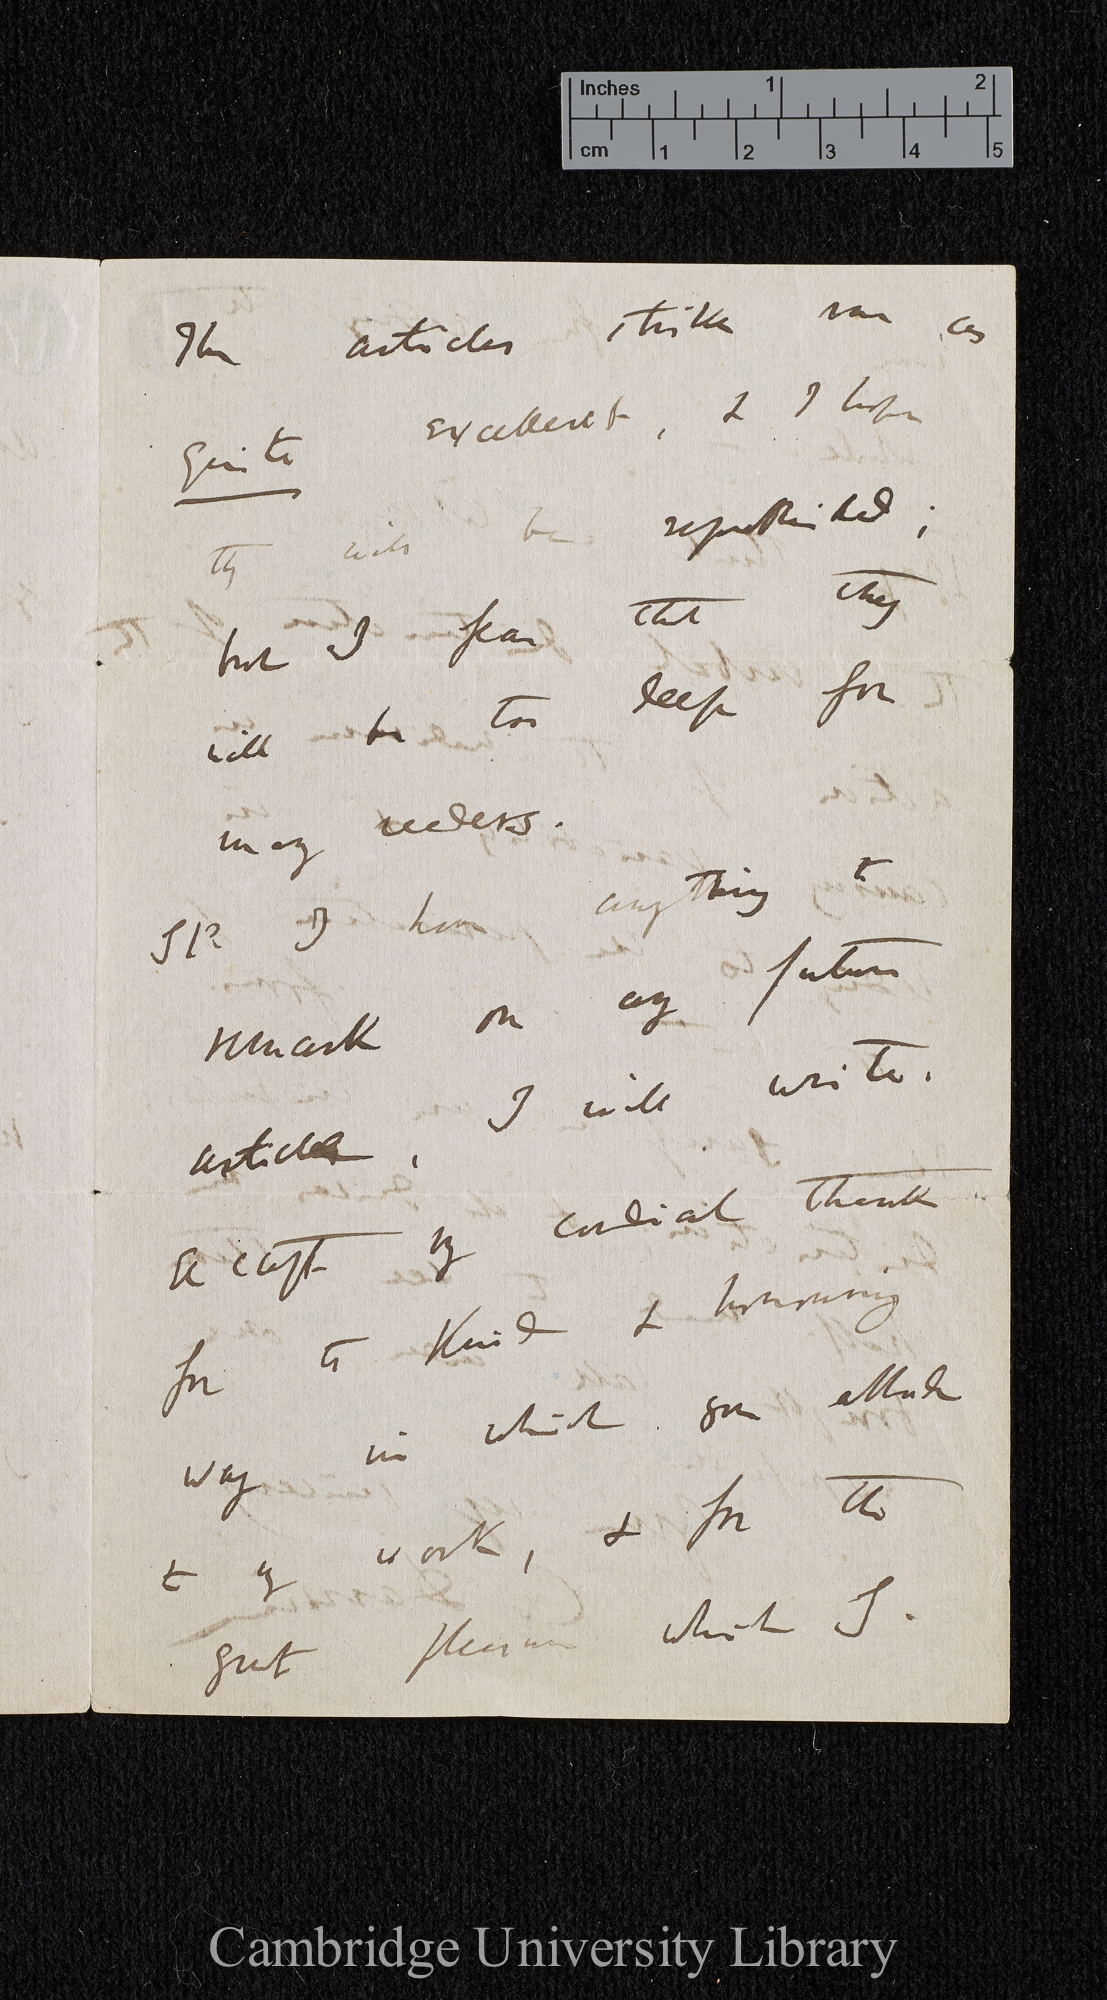 Inches 1 2
cm 1 2 3 4 5
The articles strike me as
quite excellent, & I hope
they will be republished;
but I fear that they
will be too deep for
many readers.
If I have anything to
remark on any future
article, I will write.
Accept my cordial thanks
for the kind & honouring
way in which you allude
to my work, & for the
great pleasure which I
Cambridge University Library